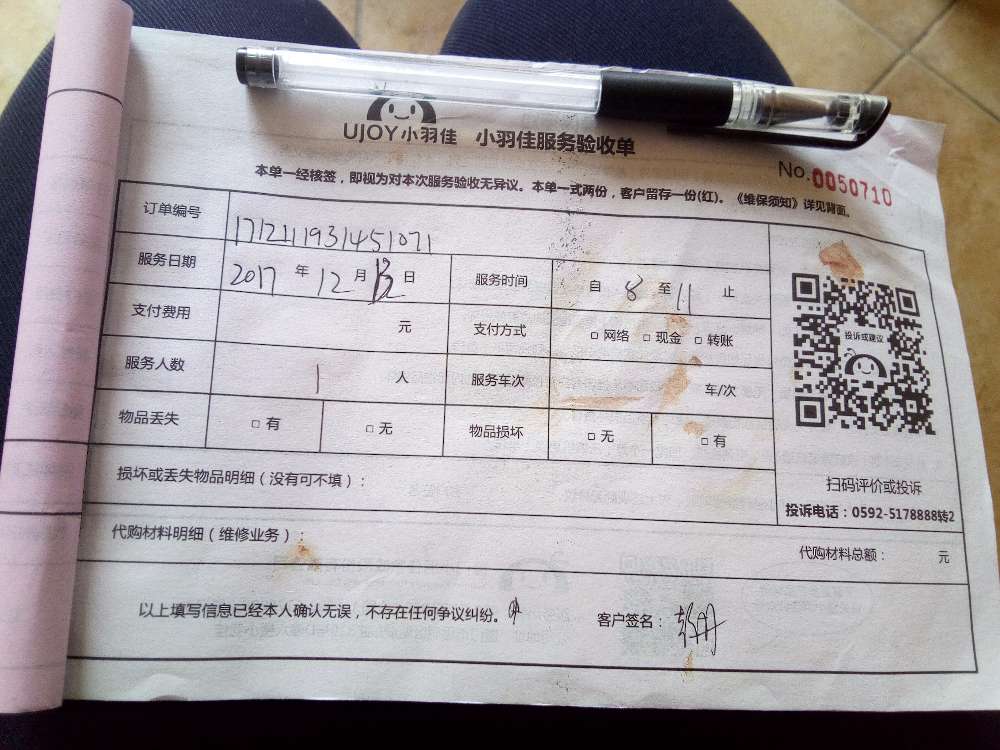 UJOY小羽佳 小羽佳服务验收单
No.0050710
本单一经核签，即视为对本次服务验收无异议。本单一式两份，客户留存一份(红)。《维保须知》详见背面。
订单编号 171211931451071
服务日期 2017 年 12 月 13 日 服务时间 自 8 至 11 止
支付费用 元 支付方式 □ 网络 □ 现金 □ 转账
服务人数 1 人 服务车次 车/次
物品丢失 □ 有 □ 无 物品损坏 □ 无 □ 有
投诉或建议
扫码评价或投诉
投诉电话：0592-5178888转2
损坏或丢失物品明细（没有可不填）：
代购材料明细（维修业务）：
代购材料总额： 元
以上填写信息已经本人确认无误，不存在任何争议纠纷。
客户签名：